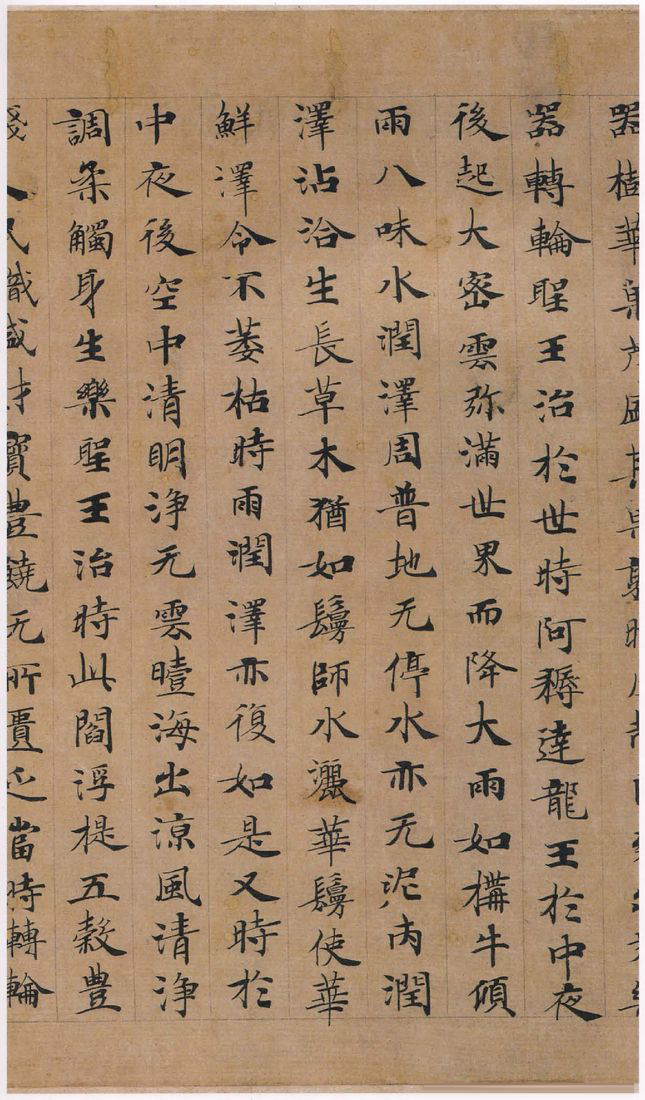 器樹華菓茂盛其菓熟時皮殼自裂出樂
器轉輪聖王治於世時阿耨達龍王於中夜
後起大密雲弥滿世界而降大雨如搆牛傾
雨八味水潤澤周普地无停水亦无泥内潤
澤沾洽生長草木猶如鬘師水灑華鬘使華
鮮澤令不萎枯時雨潤澤亦復如是又時於
中夜後空中清明浄无雲曀海出涼風清浄
調柔觸身生樂聖王治時此閻浮提五穀豊
賤人民熾盛財寶豊饒无所匱乏當時轉輪